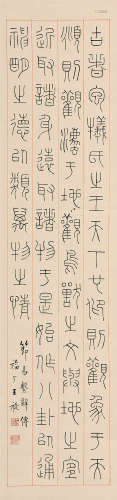 古者宓犧氏之王天下也仰則觀象于天
頫則觀灋于地觀鳥獸之文與地之宜
近取諸身遠取諸物于是始作八卦以通
神明之德以類萬物之情
節易繫辭傳
福厂王禔